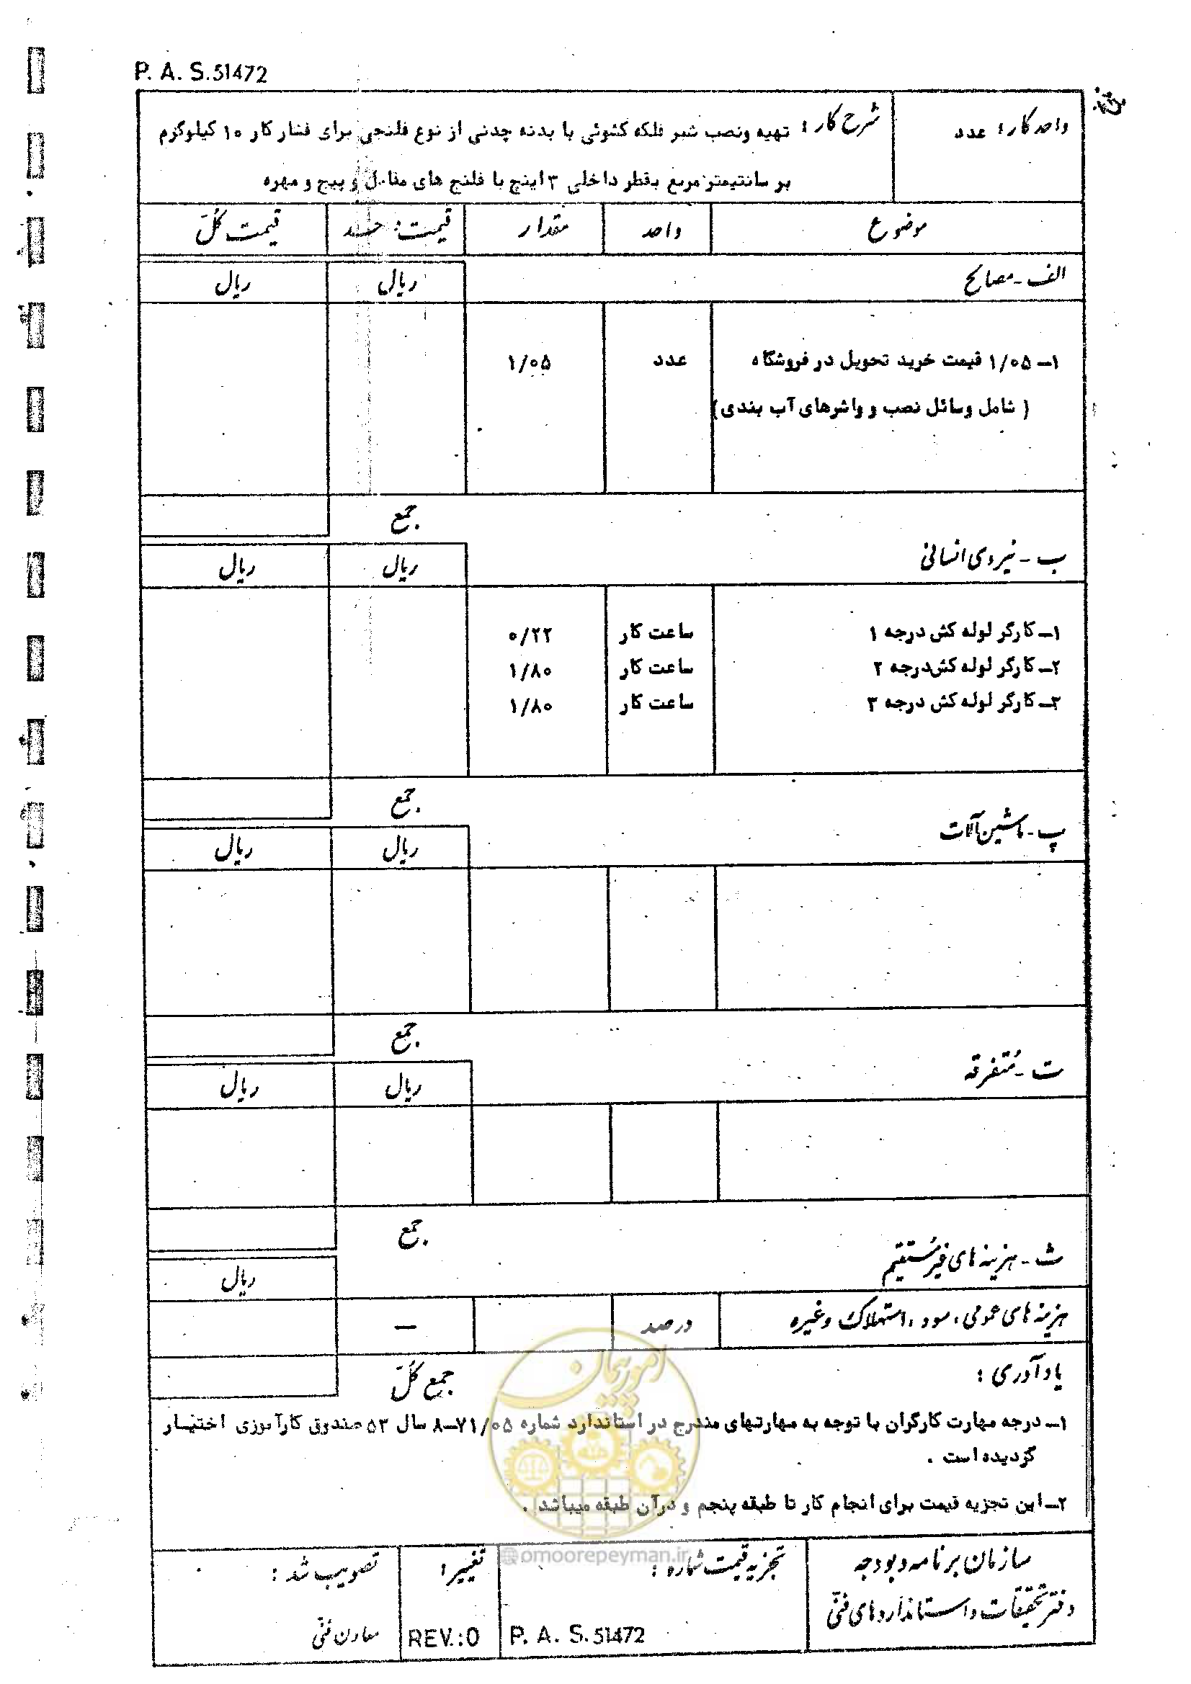 P. A. S.51472
واحد کار : عدد
شرح کار : تهیه ونصب شیر فلکه کشوئی با بدنه چدنی از نوع فلنجی برای فشار کار ۱۰ کیلوگرم
بر سانتیمتر مربع بقطر داخلی ۳ اینچ با فلنج های مقابل و پیچ و مهره
موضوع واحد مقدار قیمت قیمت کلّ
الف - مصالح ریال ریال
۱ــ ۱/۰۵ قیمت خرید تحویل در فروشگاه عدد ۱/۰۵
( شامل وسائل نصب و واشرهای آب بندی)
جمع
ب - نیروی انسانی ریال ریال
۱ــ کارگر لوله کش درجه ۱ ساعت کار ۰/۲۲
۲ــ کارگر لوله کش درجه ۲ ساعت کار ۱/۸۰
۳ــ کارگر لوله کش درجه ۳ ساعت کار ۱/۸۰
جمع
پ - ماشین آلات ریال ریال
جمع
ت - متفرقه ریال ریال
جمع
ث - هزینه های غیرمستقیم ریال
هزینه های عمومی ، سود ، استهلاک وغیره درصد —
یادآوری : جمع کلّ
۱ــ درجه مهارت کارگران با توجه به مهارتهای مندرج در استاندارد شماره ۷۱/۰۵ــ۸ سال ۵۳ صندوق کارآموزی اختیار
گردیده است .
۲ــ این تجزیه قیمت برای انجام کار تا طبقه پنجم و درآن طبقه میباشد .
امور پیمان
@omoorepeyman.ir
سازمان برنامه و بودجه
دفتر تحقیقات و استانداردهای فنّی
تجزیه قیمت شماره :
P. A. S. 51472
تغییر :
REV.:0
تصویب شد :
معاون فنّی